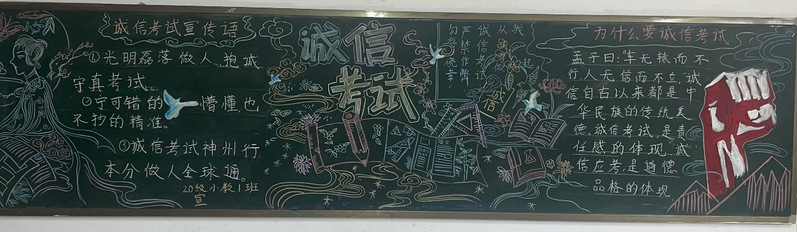 诚信考试宣传语
①光明磊落做人,抱诚
守真考试。
②宁可错的 懵懂也
不抄的精准。
③诚信考试神州行
本分做人全球通。
20级小教1班
宣
诚信
考试
从我 起
诚信考试
严禁作弊
勿存侥幸
诚信
为什么要诚信考试
孟子曰:车无辕而不
行人无信而不立,诚
信自古以来都是中
华民族的传统美
德,诚信考试,是责
任感的体现,诚
信应考,是道德
品格的体现